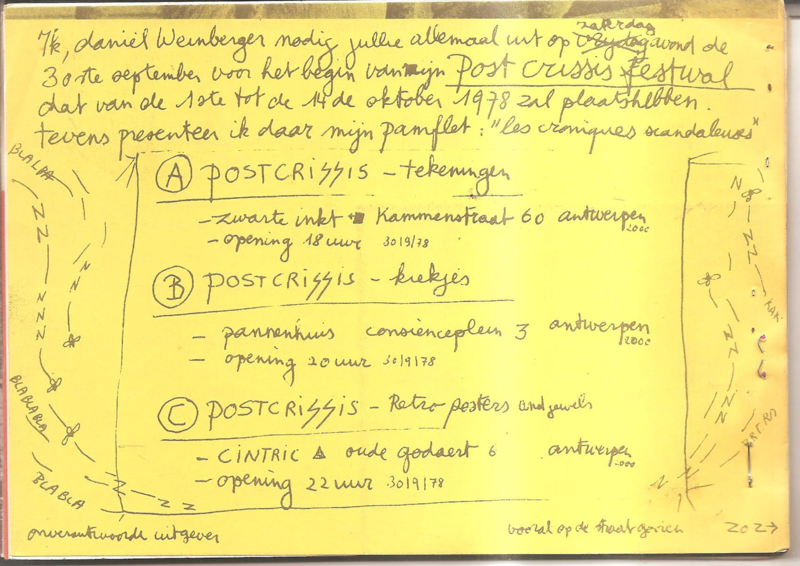 Ik, daniël Weinberger nodig jullie allemaal uit op zaterdag vrijdagavond de
30ste september voor het begin van mijn Post crissis festival
dat van de 1ste tot de 14de oktober 1978 zal plaatshebben.
tevens presenteer ik daar mijn pamflet: "les croniques scandaleuses"
BLALAA
A POSTCRISSIS - tekeningen
- zwarte inkt Kammenstraat 60 antwerpen 2000
- opening 18 uur 30/9/78
B POSTCRISSIS - kiekjes
- pannenhuis consiènceplein 3 antwerpen 2000
- opening 20 uur 30/9/78
C POSTCRISSIS - Retro posters and jewels
- CINTRIC oude godaert 6 antwerpen 2000
- opening 22 uur 30/9/78
BLABLABLA
BLABLA
onverantwoorde uitgever
vooral op de straat gooien